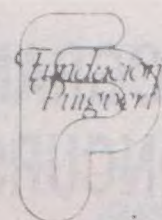 Fundación
Puigvert